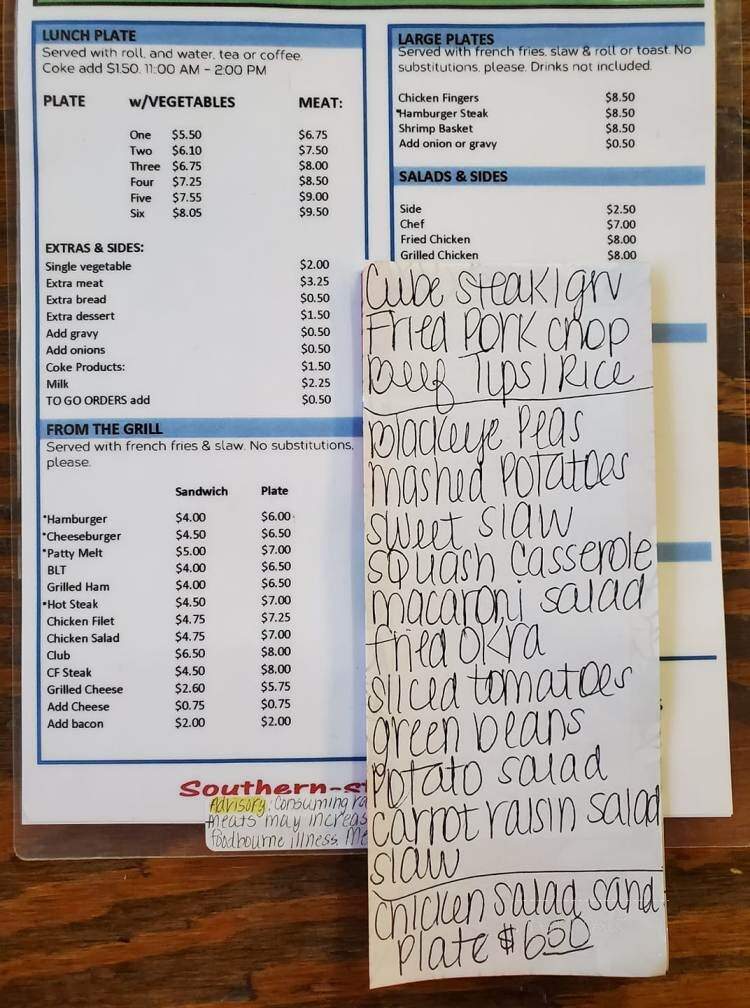 LUNCH PLATE
Served with roll, and water, tea or coffee.
Coke add $1.50. 11:00 AM - 2:00 PM
PLATE w/VEGETABLES MEAT:
One $5.50 $6.75
Two $6.10 $7.50
Three $6.75 $8.00
Four $7.25 $8.50
Five $7.55 $9.00
Six $8.05 $9.50
EXTRAS & SIDES:
Single vegetable $2.00
Extra meat $3.25
Extra bread $0.50
Extra dessert $1.50
Add gravy $0.50
Add onions $0.50
Coke Products: $1.50
Milk $2.25
TO GO ORDERS add $0.50
FROM THE GRILL
Served with french fries & slaw. No substitutions,
please.
Sandwich Plate
*Hamburger $4.00 $6.00
*Cheeseburger $4.50 $6.50
*Patty Melt $5.00 $7.00
BLT $4.00 $6.50
Grilled Ham $4.00 $6.50
*Hot Steak $4.50 $7.00
Chicken Filet $4.75 $7.25
Chicken Salad $4.75 $7.00
Club $6.50 $8.00
CF Steak $4.50 $8.00
Grilled Cheese $2.60 $5.75
Add Cheese $0.75 $0.75
Add bacon $2.00 $2.00
LARGE PLATES
Served with french fries, slaw & roll or toast. No
substitutions, please. Drinks not included.
Chicken Fingers $8.50
*Hamburger Steak $8.50
Shrimp Basket $8.50
Add onion or gravy $0.50
SALADS & SIDES
Side $2.50
Chef $7.00
Fried Chicken $8.00
Grilled Chicken $8.00
Cube steak/grv
Fried Pork chop
beef Tips/Rice
blackeye Peas
mashed Potatoes
sweet slaw
squash casserole
macaroni salad
fried okra
sliced tomatoes
green beans
Potato salad
carrot raisin salad
slaw
chicken salad sand
Plate $6.50
Southern-st
Advisory: Consuming ra
meats may increas
foodbourne illness. Me